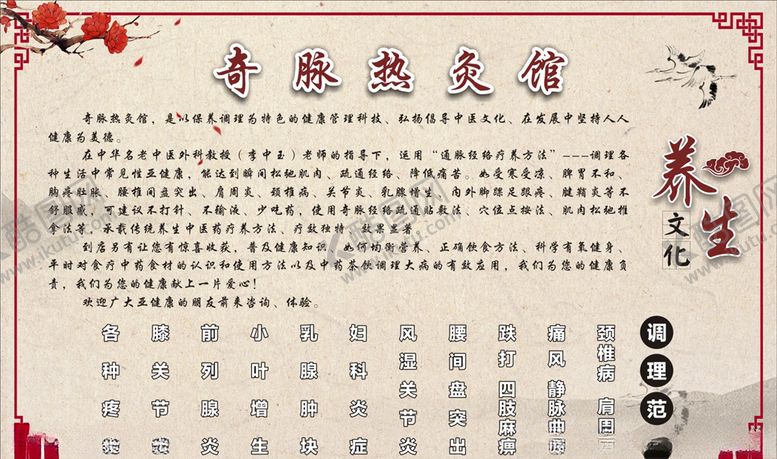 奇脉热灸馆
奇脉热灸馆，是以保养调理为特色的健康管理科技、弘扬倡导中医文化、在发展中坚持人人
健康为美德。
在中华名老中医外科教授（李中玉）老师的指导下，运用“通脉经络疗养方法”---调理各
种生活中常见性亚健康，能达到瞬间松弛肌肉、疏通经络、降低痛苦。如受寒受凉、脾胃不和、
胸疼肚胀、腰椎间盘突出、肩周炎、颈椎病、关节炎、乳腺增生、内外脚踝足跟疼、腱鞘炎等不
舒服感，可建议不打针、不输液、少吃药，使用奇脉经络疏通贴敷法、穴位点按法、肌肉松弛推
拿法等。承载传统养生中医药疗养方法、疗数独特、效果显著。
到店另有让您有惊喜收获，普及健康知识，如何均衡营养、正确饮食方法，科学有氧健身、
平时对食疗中药食材的认识和使用方法以及中药茶饮调理大病的有效应用，我们为您的健康负
责，我们为您的健康献上一片爱心！
欢迎广大亚健康的朋友前来咨询、体验。
养生
文化
调理范
颈椎病 肩周
痛风 静脉曲
跌打 四肢麻痹
腰间盘突出
风湿关节炎
妇科炎症
乳腺肿块
小叶增生
前列腺炎
膝关节
各种疼